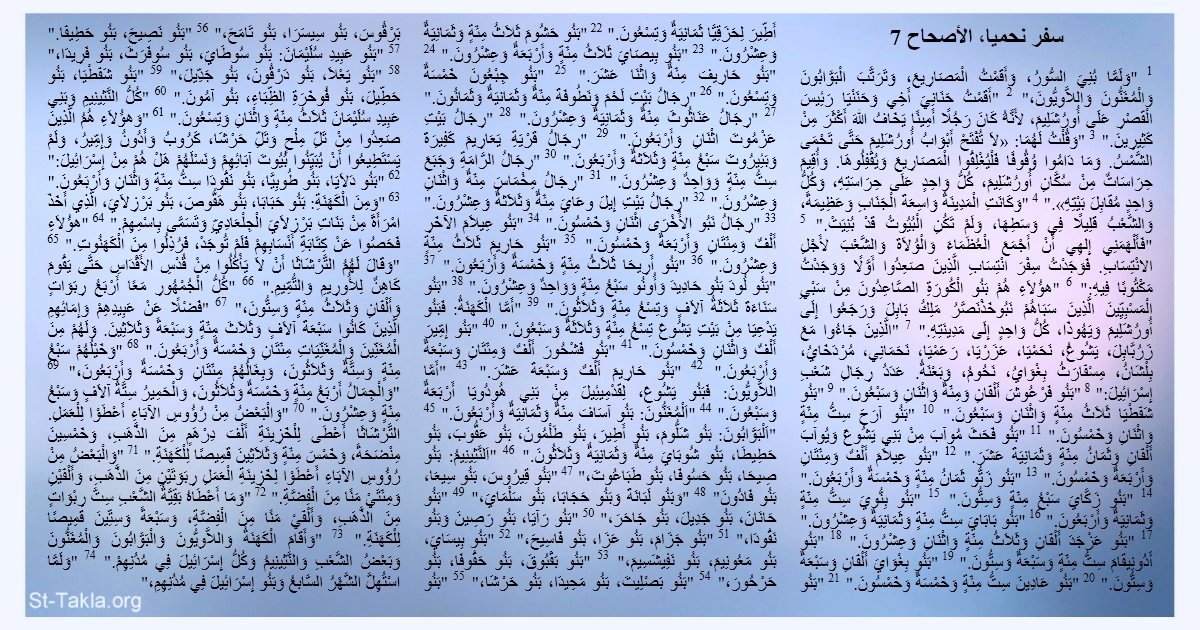 سفر نحميا، الأصحاح 7
1 "وَلَمَّا بُنِيَ السُّورُ، وَأَقَمْتُ الْمَصَارِيعَ، وَتَرَتَّبَ الْبَوَّابُونَ
وَالْمُغَنُّونَ وَاللاَّوِيُّونَ،" 2 "أَقَمْتُ حَنَانِيَ أَخِي وَحَنَنْيَا رَئِيسَ
الْقَصْرِ عَلَى أُورُشَلِيمَ، لأَنَّهُ كَانَ رَجُلاً أَمِينًا يَخَافُ اللهَ أَكْثَرَ مِنْ
كَثِيرِينَ." 3 "وَقُلْتُ لَهُمَا: «لاَ تُفْتَحْ أَبْوَابُ أُورُشَلِيمَ حَتَّى تَحْمَى
الشَّمْسُ. وَمَا دَامُوا وُقُوفًا فَلْيُغْلِقُوا الْمَصَارِيعَ وَيُقْفِلُوهَا. وَأُقِيمَ
حِرَاسَاتٌ مِنْ سُكَّانِ أُورُشَلِيمَ، كُلُّ وَاحِدٍ عَلَى حِرَاسَتِهِ، وَكُلُّ
وَاحِدٍ مُقَابِلَ بَيْتِهِ»." 4 "وَكَانَتِ الْمَدِينَةُ وَاسِعَةَ الْجَنَابِ وَعَظِيمَةً،
وَالشَّعْبُ قَلِيلاً فِي وَسَطِهَا، وَلَمْ تَكُنِ الْبُيُوتُ قَدْ بُنِيَتْ." 5
"فَأَلْهَمَنِي إِلهِي أَنْ أَجْمَعَ الْعُظَمَاءَ وَالْوُلاَةَ وَالشَّعْبَ لأَجْلِ
الانْتِسَابِ. فَوَجَدْتُ سِفْرَ انْتِسَابِ الَّذِينَ صَعِدُوا أَوَّلاً وَوَجَدْتُ
مَكْتُوبًا فِيهِ:" 6 "هؤُلاَءِ هُمْ بَنُو الْكُورَةِ الصَّاعِدُونَ مِنْ سَبْيِ
الْمَسْبِيِّينَ الَّذِينَ سَبَاهُمْ نَبُوخَذْنَصَّرُ مَلِكُ بَابِلَ وَرَجَعُوا إِلَى
أُورُشَلِيمَ وَيَهُوذَا، كُلُّ وَاحِدٍ إِلَى مَدِينَتِهِ." 7 "الَّذِينَ جَاءُوا مَعَ
زَرُبَّابِلَ، يَشُوعُ، نَحَمْيَا، عَزَرْيَا، رَعَمْيَا، نَحَمَانِي، مُرْدَخَايُ،
بِلْشَانُ، مِسْفَارَثُ بِغْوَايُ، نَحُومُ، وَبَعْنَةُ. عَدَدُ رِجَالِ شَعْبِ
إِسْرَائِيلَ:" 8 "بَنُو فَرْعُوشَ أَلْفَانِ وَمِئَةٌ وَاثْنَانِ وَسَبْعُونَ." 9 "بَنُو
شَفَطْيَا ثَلاَثُ مِئَةٍ وَاثْنَانِ وَسَبْعُونَ." 10 "بَنُو آرَحَ سِتُّ مِئَةٍ
وَاثْنَانِ وَخَمْسُونَ." 11 "بَنُو فَحَثَ مُوآبَ مِنْ بَنِي يَشُوعَ وَيُوآبَ
أَلْفَانِ وَثَمَانُ مِئَةٍ وَثَمَانِيَةَ عَشَرَ." 12 "بَنُو عِيلاَمَ أَلْفٌ وَمِئَتَانِ
وَأَرْبَعَةٌ وَخَمْسُونَ." 13 "بَنُو زَتُّو ثَمَانُ مِئَةٍ وَخَمْسَةٌ وَأَرْبَعُونَ."
14 "بَنُو زَكَّايَ سَبْعُ مِئَةٍ وَسِتُّونَ." 15 "بَنُو بِنُّويَ سِتُّ مِئَةٍ
وَثَمَانِيَةٌ وَأَرْبَعُونَ." 16 "بَنُو بَابَايَ سِتُّ مِئَةٍ وَثَمَانِيَةٌ وَعِشْرُونَ."
17 "بَنُو عَزْجَدَ أَلْفَانِ وَثَلاَثُ مِئَةٍ وَاثْنَانِ وَعِشْرُونَ." 18 "بَنُو
أَدُونِيقَامَ سِتُّ مِئَةٍ وَسَبْعَةٌ وَسِتُّونَ." 19 "بَنُو بِغْوَايَ أَلْفَانِ وَسَبْعَةٌ
وَسِتُّونَ." 20 "بَنُو عَادِينَ سِتُّ مِئَةٍ وَخَمْسَةٌ وَخَمْسُونَ." 21 "بَنُو
أَطِّيرَ لِحَزَقِيَّا ثَمَانِيَةٌ وَتِسْعُونَ." 22 "بَنُو حَشُومَ ثَلاَثُ مِئَةٍ وَثَمَانِيَةٌ
وَعِشْرُونَ." 23 "بَنُو بِيصَايَ ثَلاَثُ مِئَةٍ وَأَرْبَعَةٌ وَعِشْرُونَ." 24
"بَنُو حَارِيفَ مِئَةٌ وَاثْنَا عَشَرَ." 25 "بَنُو جِبْعُونَ خَمْسَةٌ
وَتِسْعُونَ." 26 "رِجَالُ بَيْتِ لَحْمَ وَنَطُوفَةَ مِئَةٌ وَثَمَانِيَةٌ وَثَمَانُونَ."
27 "رِجَالُ عَنَاثُوثَ مِئَةٌ وَثَمَانِيَةٌ وَعِشْرُونَ." 28 "رِجَالُ بَيْتِ
عَزْمُوتَ اثْنَانِ وَأَرْبَعُونَ." 29 "رِجَالُ قَرْيَةِ يَعَارِيمَ كَفِيرَةَ
وَبَئِيرُوتَ سَبْعُ مِئَةٍ وَثَلاَثَةٌ وَأَرْبَعُونَ." 30 "رِجَالُ الرَّامَةِ وَجَبَعَ
سِتُّ مِئَةٍ وَوَاحِدٌ وَعِشْرُونَ." 31 "رِجَالُ مِخْمَاسَ مِئَةٌ وَاثْنَانِ
وَعِشْرُونَ." 32 "رِجَالُ بَيْتِ إِيلَ وَعَايَ مِئَةٌ وَثَلاَثَةٌ وَعِشْرُونَ."
33 "رِجَالُ نَبُو الأُخْرَى اثْنَانِ وَخَمْسُونَ." 34 "بَنُو عِيلاَمَ الآخَرِ
أَلْفٌ وَمِئَتَانِ وَأَرْبَعَةٌ وَخَمْسُونَ." 35 "بَنُو حَارِيمَ ثَلاَثُ مِئَةٍ
وَعِشْرُونَ." 36 "بَنُو أَرِيحَا ثَلاَثُ مِئَةٍ وَخَمْسَةٌ وَأَرْبَعُونَ." 37
"بَنُو لُودَ بَنُو حَادِيدَ وَأُونُو سَبْعُ مِئَةٍ وَوَاحِدٌ وَعِشْرُونَ." 38 "بَنُو
سَنَاءَةَ ثَلاَثَةُ آلاَفٍ وَتِسْعُ مِئَةٍ وَثَلاَثُونَ." 39 "أَمَّا الْكَهَنَةُ: فَبَنُو
يَدْعِيَا مِنْ بَيْتِ يَشُوعَ تِسْعُ مِئَةٍ وَثَلاَثَةٌ وَسَبْعُونَ." 40 "بَنُو إِمِّيرَ
أَلْفٌ وَاثْنَانِ وَخَمْسُونَ." 41 "بَنُو فَشْحُورَ أَلْفٌ وَمِئَتَانِ وَسَبْعَةٌ
وَأَرْبَعُونَ." 42 "بَنُو حَارِيمَ أَلْفٌ وَسَبْعَةَ عَشَرَ." 43 "أَمَّا
اللاَّوِيُّونَ: فَبَنُو يَشُوعَ، لِقَدْمِيئِيلَ مِنْ بَنِي هُودُويَا أَرْبَعَةٌ
وَسَبْعُونَ." 44 "اَلْمُغَنُّونَ: بَنُو آسَافَ مِئَةٌ وَثَمَانِيَةٌ وَأَرْبَعُونَ." 45
"اَلْبَوَّابُونَ: بَنُو شَلُّومَ، بَنُو أَطِيرَ، بَنُو طَلْمُونَ، بَنُو عَقُّوبَ، بَنُو
حَطِيطَا، بَنُو شُوبَايَ مِئَةٌ وَثَمَانِيَةٌ وَثَلاَثُونَ." 46 "اَلنَّثِينِيمُ: بَنُو
صِيحَا، بَنُو حَسُوفَا، بَنُو طَبَاعُوتَ،" 47 "بَنُو قِيرُوسَ، بَنُو سِيعَا،
بَنُو فَادُونَ" 48 "وَبَنُو لَبَانَةَ وَبَنُو حَجَابَا، بَنُو سَلْمَايَ،" 49 "بَنُو
حَانَانَ، بَنُو جَدِيلَ، بَنُو جَاحَرَ،" 50 "بَنُو رَآيَا، بَنُو رَصِينَ وَبَنُو
نَقُودَا،" 51 "بَنُو جَزَامَ، بَنُو عَزَا، بَنُو فَاسِيحَ،" 52 "بَنُو بِيسَايَ،
بَنُو مَعُونِيمَ، بَنُو نَفِيشَسِيمَ،" 53 "بَنُو بَقْبُوقَ، بَنُو حَقُوفَا، بَنُو
حَرْحُورَ،" 54 "بَنُو بَصْلِيتَ، بَنُو مَحِيدَا، بَنُو حَرْشَا،" 55 "بَنُو
بَرْقُوسَ، بَنُو سِيسَرَا، بَنُو تَامَحَ،" 56 "بَنُو نَصِيحَ، بَنُو حَطِيفَا."
57 "بَنُو عَبِيدِ سُلَيْمَانَ: بَنُو سُوطَايَ، بَنُو سُوفَرَثَ، بَنُو فَرِيدَا،"
58 "بَنُو يَعْلاَ، بَنُو دَرْقُونَ، بَنُو جَدِّيلَ،" 59 "بَنُو شَفَطْيَا، بَنُو
حَطِّيلَ، بَنُو فُوخَرَةِ الظِّبَاءِ، بَنُو آمُونَ." 60 "كُلُّ النَّثِينِيمِ وَبَنِي
عَبِيدِ سُلَيْمَانَ ثَلاَثُ مِئَةٍ وَاثْنَانِ وَتِسْعُونَ." 61 "وَهؤُلاَءِ هُمُ الَّذِينَ
صَعِدُوا مِنْ تَلِّ مِلْحٍ وَتَلِّ حَرْشَا، كَرُوبُ وَأَدُونُ وَإِمِّيرُ، وَلَمْ
يَسْتَطِيعُوا أَنْ يُبَيِّنُوا بُيُوتَ آبَائِهِمْ وَنَسْلَهُمْ هَلْ هُمْ مِنْ إِسْرَائِيلَ:"
62 "بَنُو دَلاَيَا، بَنُو طُوبِيَّا، بَنُو نَقُودَا سِتُّ مِئَةٍ وَاثْنَانِ وَأَرْبَعُونَ."
63 "وَمِنَ الْكَهَنَةِ: بَنُو حَبَابَا، بَنُو هَقُّوصَ، بَنُو بَرْزِلاَيَ، الَّذِي أَخَذَ
امْرَأَةً مِنْ بَنَاتِ بَرْزِلاَيَ الْجِلْعَادِيِّ وَتَسَمَّى بِاسْمِهِمْ." 64 "هؤُلاَءِ
فَحَصُوا عَنْ كِتَابَةِ أَنْسَابِهِمْ فَلَمْ تُوجَدْ، فَرُذِلُوا مِنَ الْكَهَنُوتِ." 65
"وَقَالَ لَهُمُ التَّرْشَاثَا أَنْ لاَ يَأْكُلُوا مِنْ قُدْسِ الأَقْدَاسِ حَتَّى يَقُومَ
كَاهِنٌ لِلأُورِيمِ وَالتُّمِّيمِ." 66 "كُلُّ الْجُمْهُورِ مَعًا أَرْبَعُ رِبَوَاتٍ
وَأَلْفَانِ وَثَلاَثُ مِئَةٍ وَسِتُّونَ،" 67 "فَضْلاً عَنْ عَبِيدِهِمْ وَإِمَائِهِمِ
الَّذِينَ كَانُوا سَبْعَةَ آلاَفٍ وَثَلاَثَ مِئَةٍ وَسَبْعَةً وَثَلاَثِينَ. وَلَهُمْ مِنَ
الْمُغَنِّينَ وَالْمُغَنِّيَاتِ مِئَتَانِ وَخَمْسَةٌ وَأَرْبَعُونَ." 68 "وَخَيْلُهُمْ سَبْعُ
مِئَةٍ وَسِتَّةٌ وَثَلاَثُونَ، وَبِغَالُهُمْ مِئَتَانِ وَخَمْسَةٌ وَأَرْبَعُونَ،" 69
"وَالْجِمَالُ أَرْبَعُ مِئَةٍ وَخَمْسَةٌ وَثَلاَثُونَ، وَالْحَمِيرُ سِتَّةُ آلاَفٍ وَسَبْعُ
مِئَةٍ وَعِشْرُونَ." 70 "وَالْبَعْضُ مِنْ رُؤُوسِ الآبَاءِ أَعْطَوْا لِلْعَمَلِ.
التَّرْشَاثَا أَعْطَى لِلْخَزِينَةِ أَلْفَ دِرْهَمٍ مِنَ الذَّهَبِ، وَخَمْسِينَ
مِنْضَحَةً، وَخَمْسَ مِئَةٍ وَثَلاَثِينَ قَمِيصًا لِلْكَهَنَةِ." 71 "وَالْبَعْضُ مِنْ
رُؤُوسِ الآبَاءِ أَعْطَوْا لِخَزِينَةِ الْعَمَلِ رِبْوَتَيْنِ مِنَ الذَّهَبِ، وَأَلْفَيْنِ
وَمِئَتَيْ مَنًا مِنَ الْفِضَّةِ." 72 "وَمَا أَعْطَاهُ بَقِيَّةُ الشَّعْبِ سِتَّ رِبَوَاتٍ
مِنَ الذَّهَبِ، وَأَلْفَيْ مَنًا مِنَ الْفِضَّةِ، وَسَبْعَةً وَسِتِّينَ قَمِيصًا
لِلْكَهَنَةِ." 73 "وَأَقَامَ الْكَهَنَةُ وَاللاَّوِيُّونَ وَالْبَوَّابُونَ وَالْمُغَنُّونَ
وَبَعْضُ الشَّعْبِ وَالنَّثِينِيمُ وَكُلُّ إِسْرَائِيلَ فِي مُدُنِهِمْ." 74 "وَلَمَّا
اسْتُهِلَّ الشَّهْرُ السَّابعُ وَبَنُو إِسْرَائِيلَ فِي مُدُنِهِمِ،"
St-Takla.org